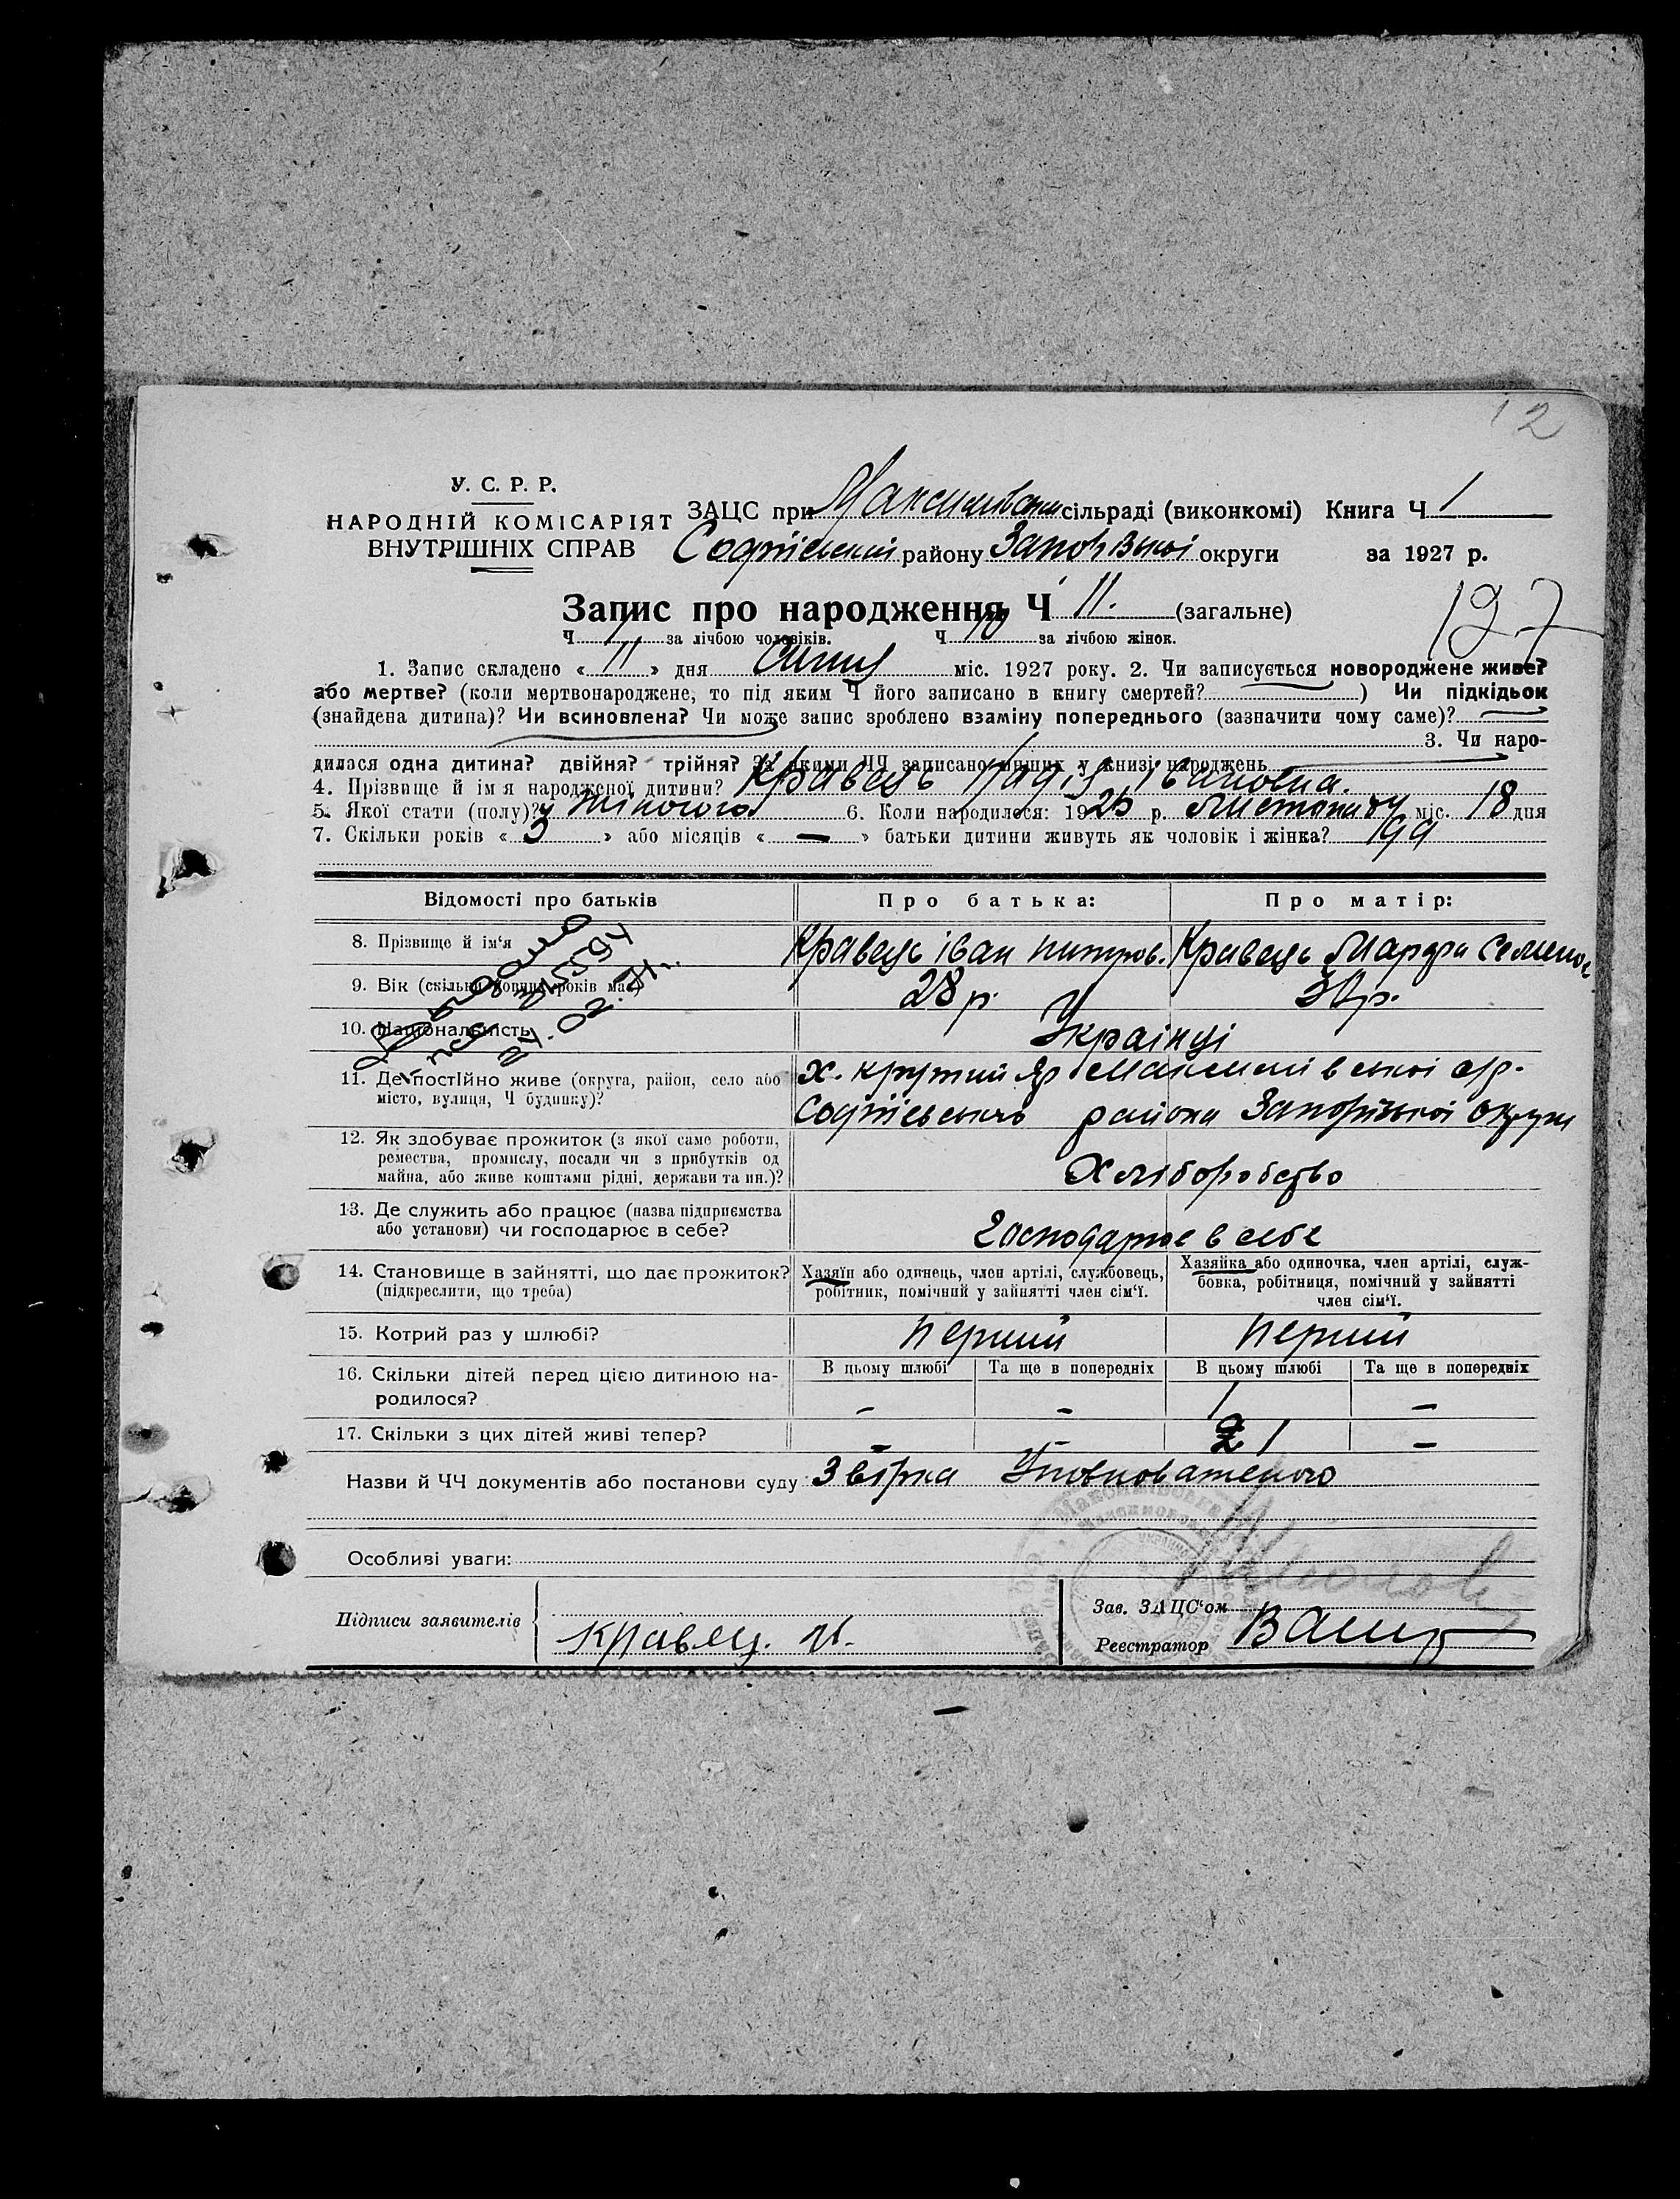 12
У. С. Р. Р.
НАРОДНІЙ КОМІСАРІЯТ
ВНУТРІШНІХ СПРАВ
ЗАЦС при сільраді (виконкомі) Книга Ч 1
району округи за 1927 р.
Запис про народження Ч 11. (загальне)
127
Ч 1 за лічбою чоловіків. Ч 10 за лічбою жінок.
1. Запис складено « 11 » дня Січня міс. 1927 року. 2. Чи записується новороджене живе?
або мертве? (коли мертвонароджене, то під яким Ч його записано в книгу смертей? ) Чи підкідьок
(знайдена дитина)? Чи всиновлена? Чи може запис зроблено взаміну попереднього (зазначити чому саме)?
3. Чи наро-
дилася одна дитина? двійня? трійня? За якими ЧЧ записано инших у книзі народжень
4. Прізвище й ім'я народженої дитини? Кравець Надія Івановна.
5. Якої стати (полу)? жіночого 6. Коли народилося: 1925 р. Листопаду міс. 18 дня
7. Скільки років « 3 » або місяців « — » батьки дитини живуть як чоловік і жінка?
Відомості про батьків Про батька: Про матір:
8. Прізвище й ім'я Кравець Іван Кравець Марфа
9. Вік (скільки повних років має) 28 р. р.
10. Національність Українці
11. Де постійно живе (округа, район, село або місто, вулиця, Ч будинку)? х. крутий Яр
района Запорізької округи
12. Як здобуває прожиток (з якої саме роботи,
ремества, промислу, посади чи з прибутків од
майна, або живе коштами рідні, держави та ин.)? Хліборобство
13. Де служить або працює (назва підприємства
або установи) чи господарює в себе? Господарює в себе
14. Становище в зайнятті, що дає прожиток? (підкреслити, що треба)
Хазяїн або одинець, член артілі, службовець,
робітник, помічний у зайнятті член сім'ї.
Хазяйка або одиночка, член артілі, служ-
бовка, робітниця, помічний у зайнятті
член сім'ї.
15. Котрий раз у шлюбі? перший перший
В цьому шлюбі Та ще в попередніх В цьому шлюбі Та ще в попередніх
16. Скільки дітей перед цією дитиною на-
родилося? - - 1 -
17. Скільки з цих дітей живі тепер? - - 1 -
Назви й ЧЧ документів або постанови суду Уповноваженого
Особливі уваги:
Зав. ЗАЦС'ом
Підписи заявителів Кравец. И.
Реєстратор